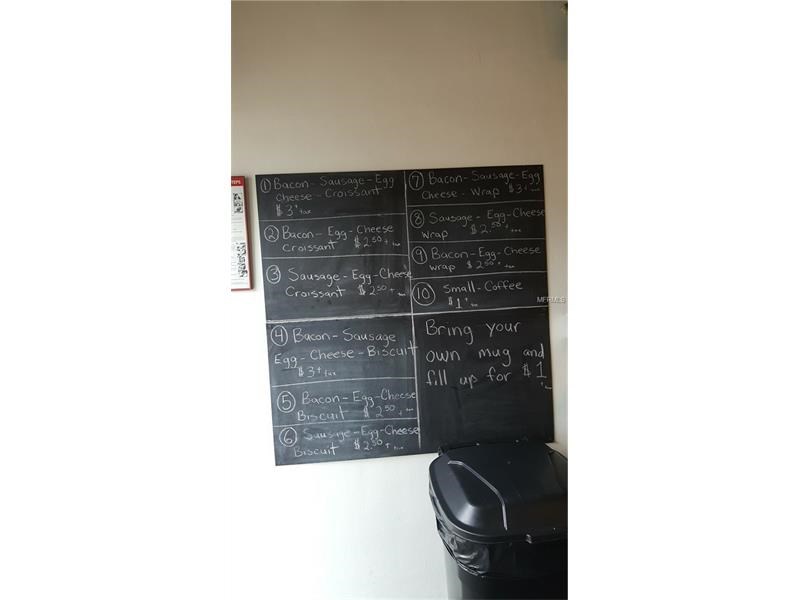 ① Bacon - Sausage - Egg
Cheese - Croissant
$3 + tax
② Bacon - Egg - Cheese
Croissant $2.50 + tax
③ Sausage - Egg - Cheese
Croissant $2.50 + tax
④ Bacon - Sausage
Egg - Cheese - Biscuit
$3 + tax
⑤ Bacon - Egg - Cheese
Biscuit $2.50 + tax
⑥ Sausage - Egg - Cheese
Biscuit $2.50 + tax
⑦ Bacon - Sausage - Egg
Cheese - Wrap $3 + tax
⑧ Sausage - Egg - Cheese
Wrap $2.50 + tax
⑨ Bacon - Egg - Cheese
Wrap $2.50 + tax
⑩ Small - Coffee
$1 + tax
Bring your
own mug and
fill up for $1
+ tax
MFRMLS